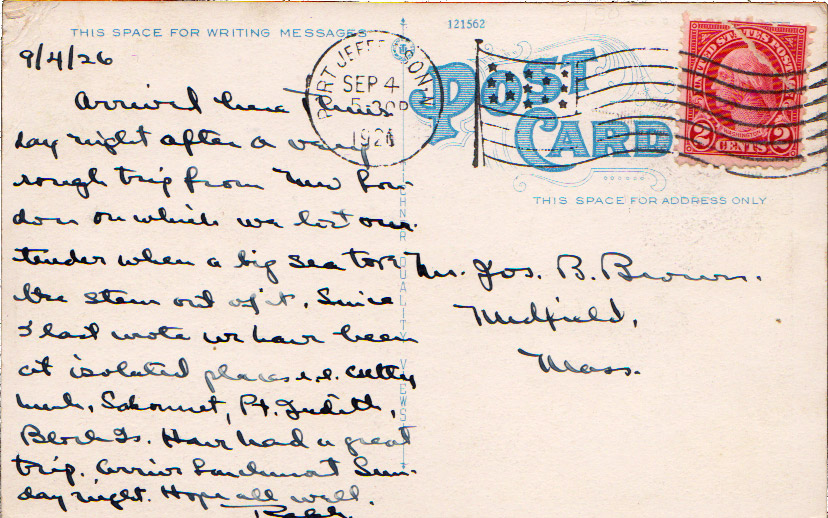 THIS SPACE FOR WRITING MESSAGES
121562
9/4/26
PORT JEFFERSON, N
SEP 4
5-30P
1926
POST CARD
UNITED STATES POSTAGE
WASHINGTON
2 CENTS 2
THIS SPACE FOR ADDRESS ONLY
Arrived here Thurs-
day night after a very
rough trip from New Lon-
don on which we lost our
tender when a big sea tore
the stem out of it. Since
I last wrote we have been
at isolated places i.e. Cutty
hunk, Sakonnet, Pt. Judith,
Block Is. Have had a great
trip. Arrive Larchmont Sun-
day night. Hope all well.
Ralph.
Mr. Jos. B. Brown.
Medfield,
Mass.
QUALITY VIEWS